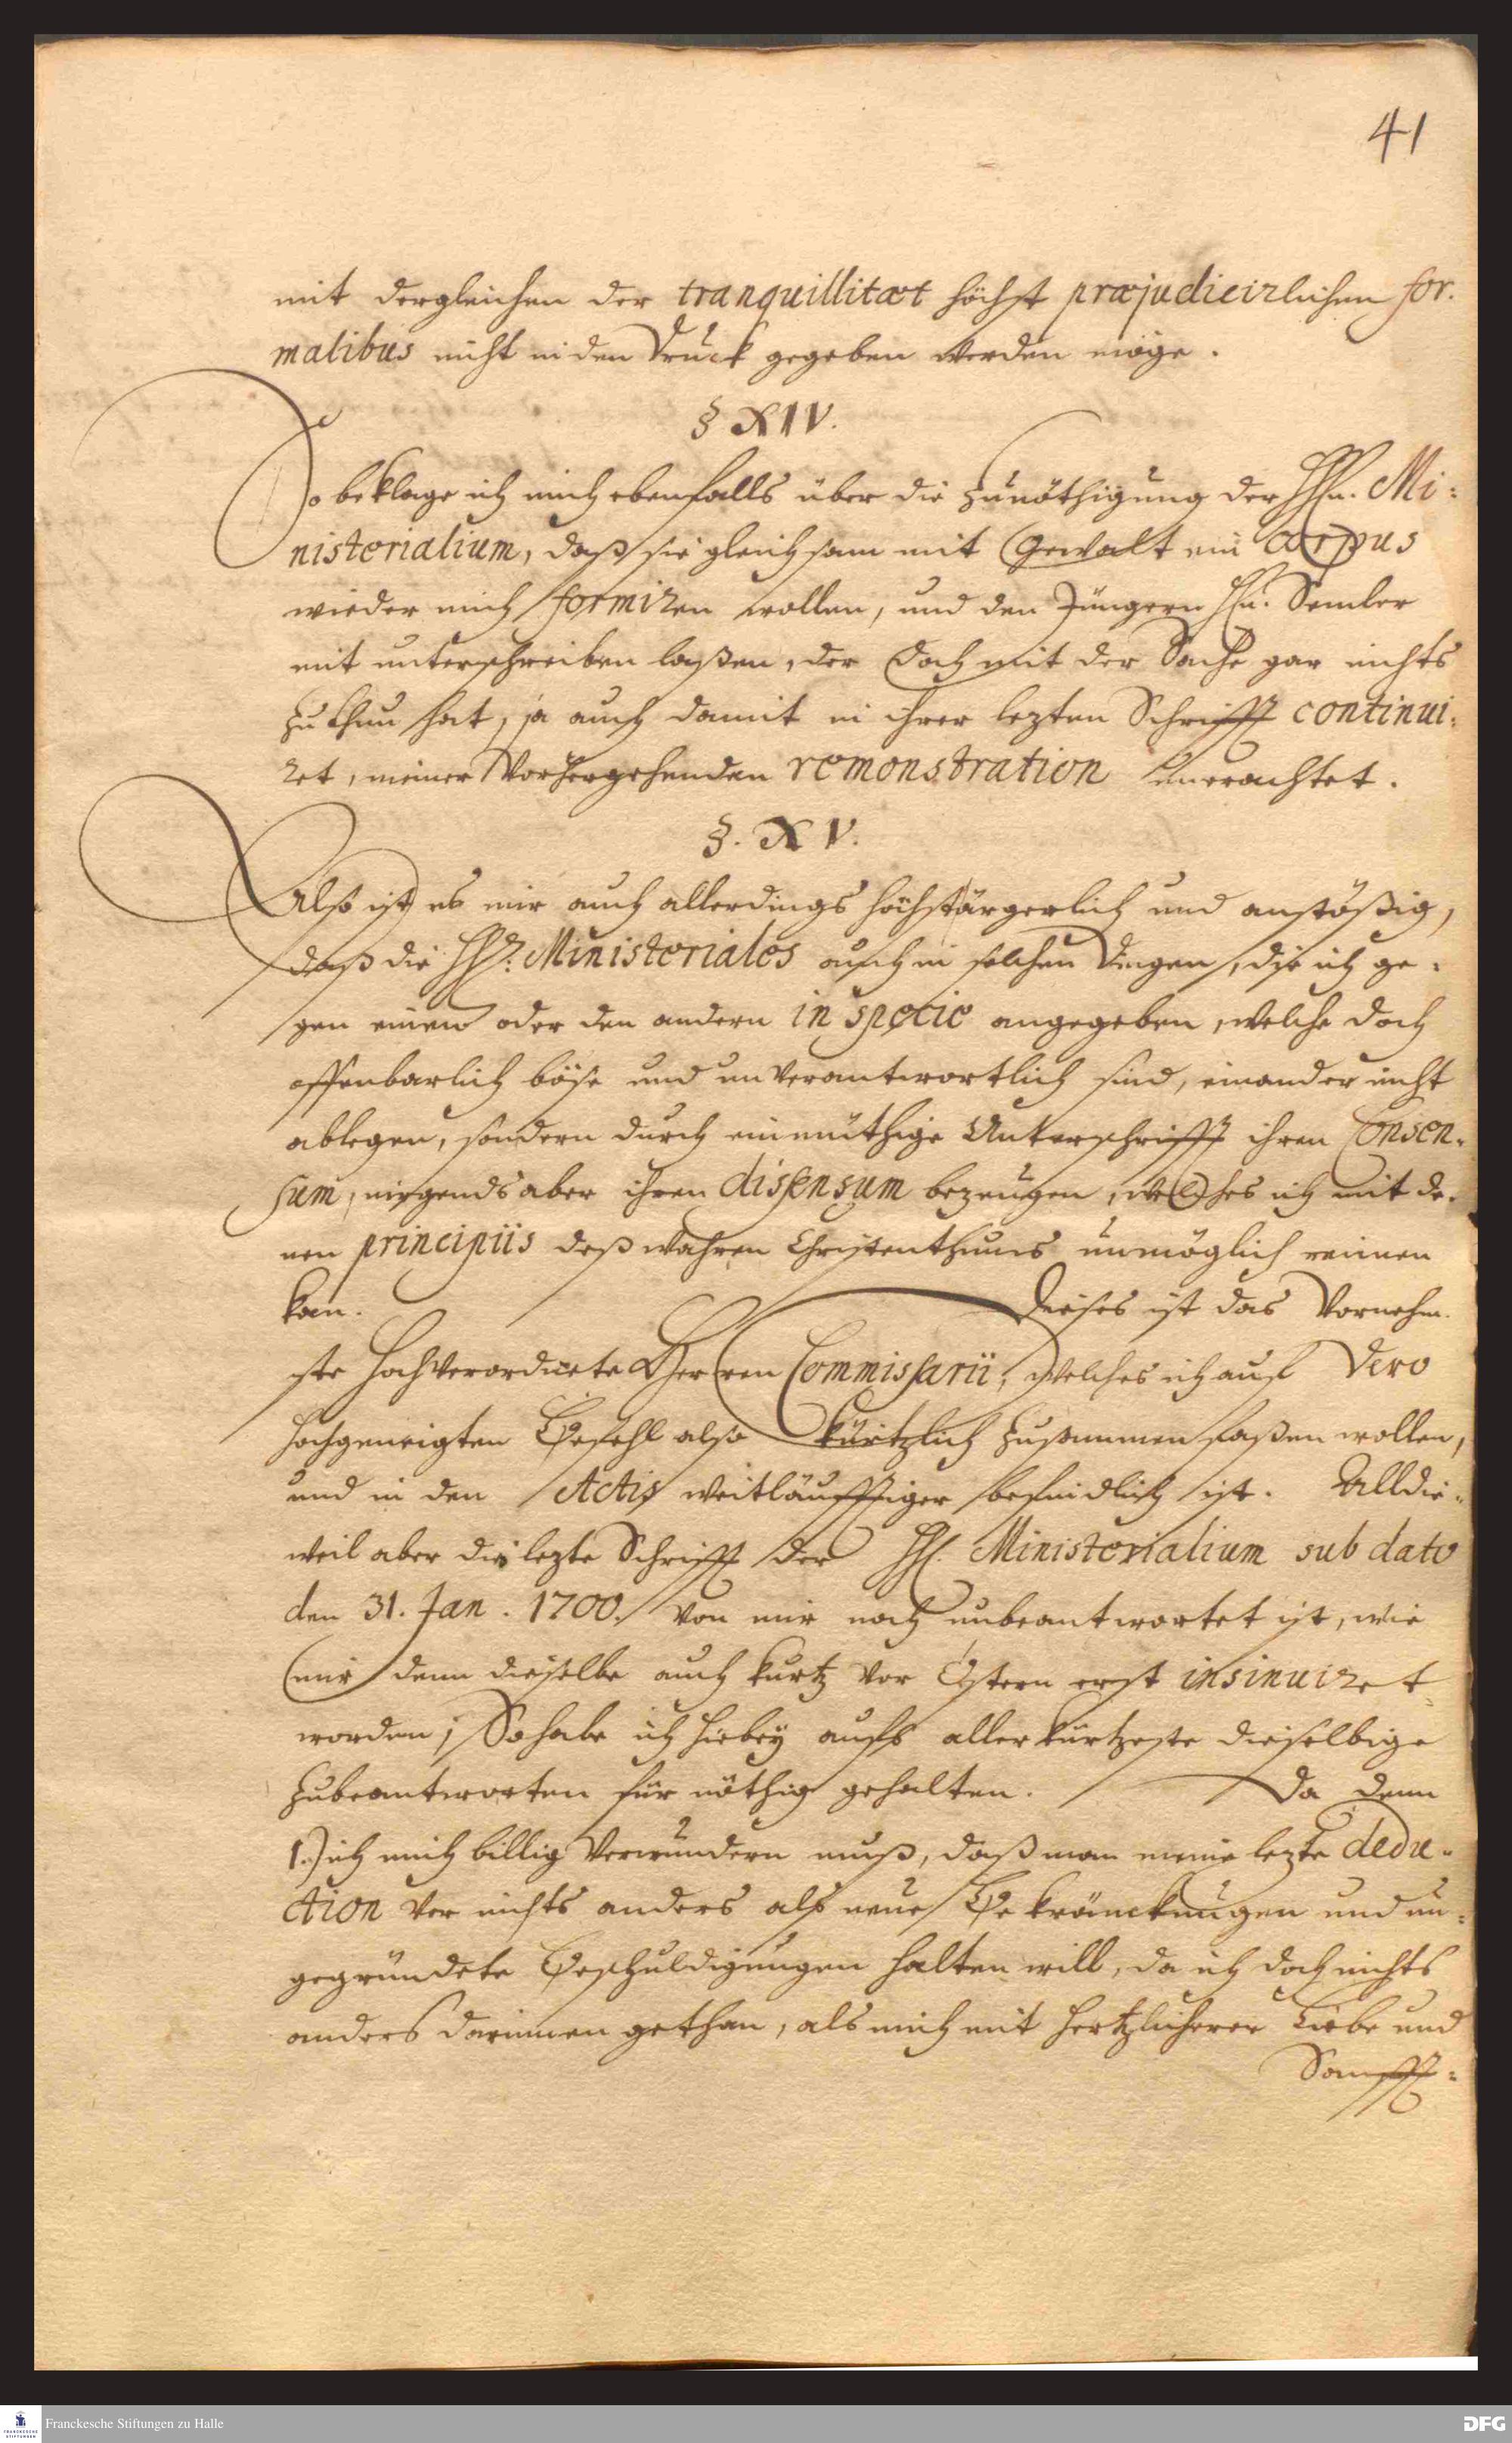 41
mit dergleichen der tranquillitæt höchst præjudicirlichen for-
malibus nicht in den Druck gegeben werden möge.
§ XIV.
So beklage ich mich ebenfalls über die zunöthigung der HHn. Mi-
nisterialium, daß sie gleichsam mit Gewalt ein Corpus
wieder mich formiren wollen, und den Jüngern Hn. Semler
mit unterschreiben laßen, der doch mit der Sache gar nichts
zu thun hat, ja auch damit in ihrer lezten Schrifft continui-
ret, meiner Vorhergehenden remonstration unerachtet.
§. XV.
Also ist es mir auch allerdings höchstärgerlich und anstößig,
daß die HH. Ministeriales auch in solchen Dingen, die ich ge-
gen einen oder den andern in specie angegeben, welche doch
offenbarlich böse und unverantwortlich sind, einander nicht
ablegen, sondern durch einmüthige Unterschrifft ihren Consen-
sum, nirgends aber ihren dissensum bezeugen, welches ich mit de-
nen principiis deß wahren Christenthums unmöglich reimen
kan. Dieses ist das Vornehm-
ste Hochverordnete Herren Commissarii, welches ich auf Dero
hochgeneigten Befehl also kürtzlich zusammen faßen wollen,
und in den Actis weitläufftiger befindlich ist. Alldie-
weil aber die lezte Schrifft der HH. Ministerialium sub dato
den 31. Jan. 1700. von mir noch unbeantwortet ist, wie
mir denn dieselbe auch kurtz vor Ostern erst insinuiret
worden; So habe ich hiebey aufs allerkürtzeste dieselbige
zubeantworten für nöthig gehalten. Da denn
1.) ich mich billig verwundern muß, daß man meine lezte dedu-
ction vor nichts anders als neue Bekränckungen und un-
gegründete Beschuldigungen halten will, da ich doch nichts
anders darinnen gethan, als mich mit hertzlicherer Liebe und
Sanfft-
Franckesche Stiftungen zu Halle
DFG